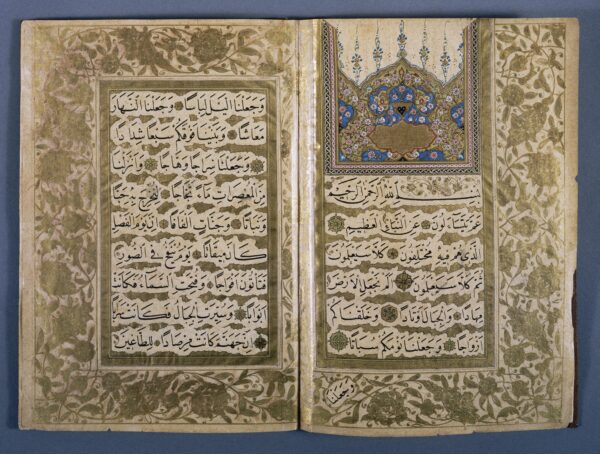 بسم الله الرحمن الرحيم
عم يتساءلون عن النبإ العظيم
الذي هم فيه مختلفون كلا سيعلمون
ثم كلا سيعلمون ألم نجعل الأرض
مهادا والجبال أوتادا وخلقناكم
أزواجا وجعلنا نومكم سباتا
وجعلنا
وجعلنا الليل لباسا وجعلنا النهار
معاشا وبنينا فوقكم سبعا شدادا
وجعلنا سراجا وهاجا وأنزلنا
من المعصرات ماء ثجاجا لنخرج به حبا
ونباتا وجنات ألفافا إن يوم الفصل
كان ميقاتا يوم ينفخ في الصور
فتأتون أفواجا وفتحت السماء فكانت
أبوابا وسيرت الجبال فكانت سرابا
إن جهنم كانت مرصادا للطاغين